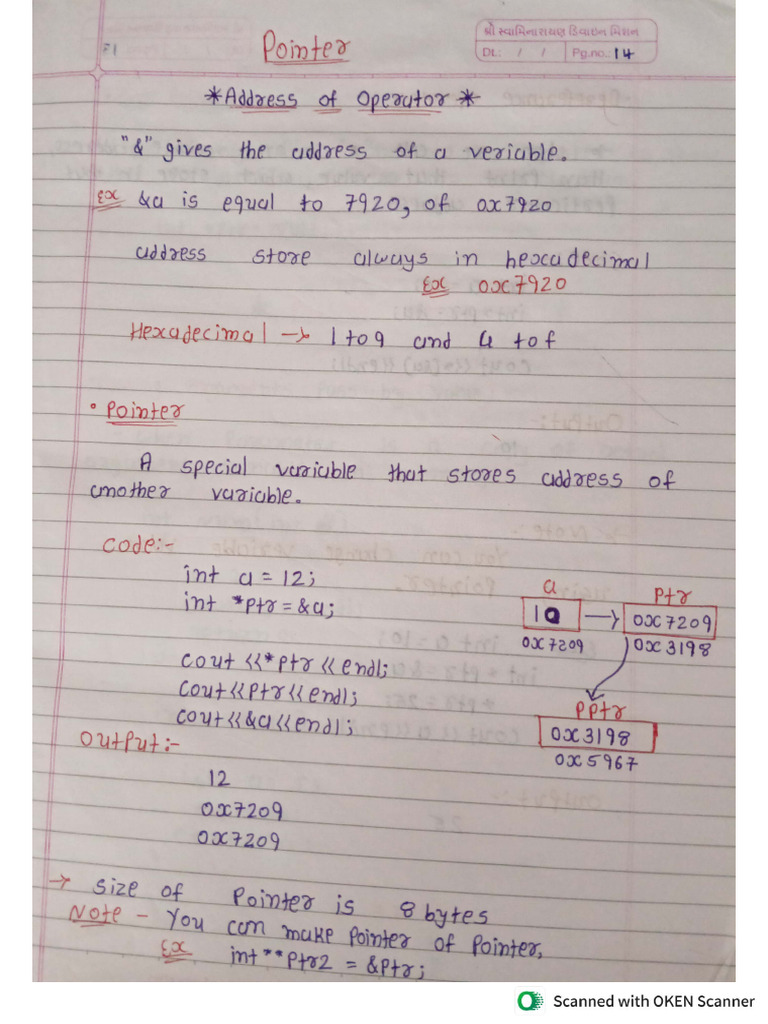 શ્રી સ્વામિનારાયણ ડિવાઇન મિશન
Dt.: / / Pg.no.: 14
Pointer
*Address of Operator*
"&" gives the address of a veriable.
Ex &a is equal to 7920, of 0x7920
address store always in hexadecimal
Ex 0x7920
Hexadecimal → 1 to 9 and a to f
• Pointer
A special variable that stores address of
another variable.
Code:-
int a = 12;
int *ptr = &a;
cout <<*ptr << endl;
cout<<ptr<<endl;
cout<<&a<<endl;
a ptr
10 → 0x7209
0x7209 0x3198
pptr
0x3198
0x5967
Output:-
12
0x7209
0x7209
→ size of Pointer is 8 bytes
Note - You can make pointer of pointer,
Ex int**ptr2 = &ptr;
Scanned with OKEN Scanner